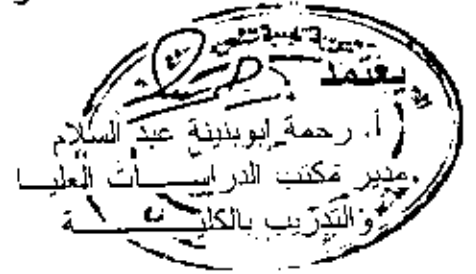 يعتمد
أ. رحمة ابوبنينة عبد السلام
مدير مكتب الدراســـات العليــا
والتدريب بالكليـــــــة